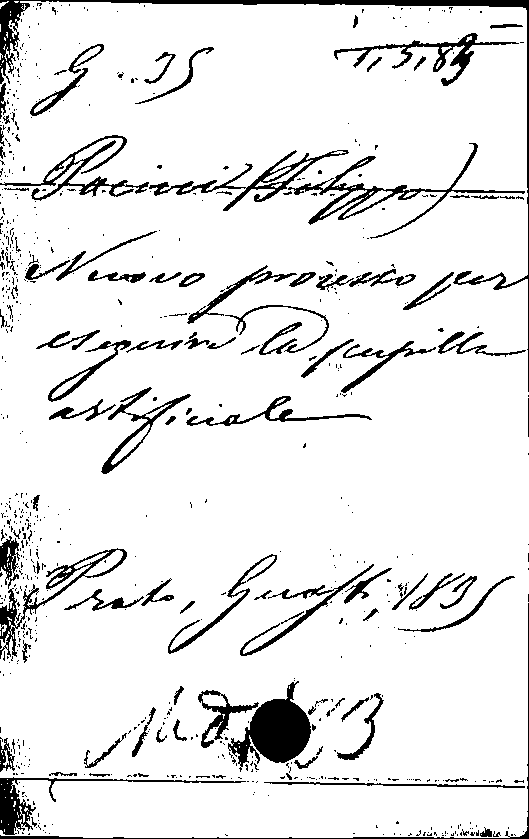 G. 35
1, 5, 82
Pacini (Filippo)
Nuovo processo per
eseguire la pupilla
artificiale
Prato, Guasti, 1835